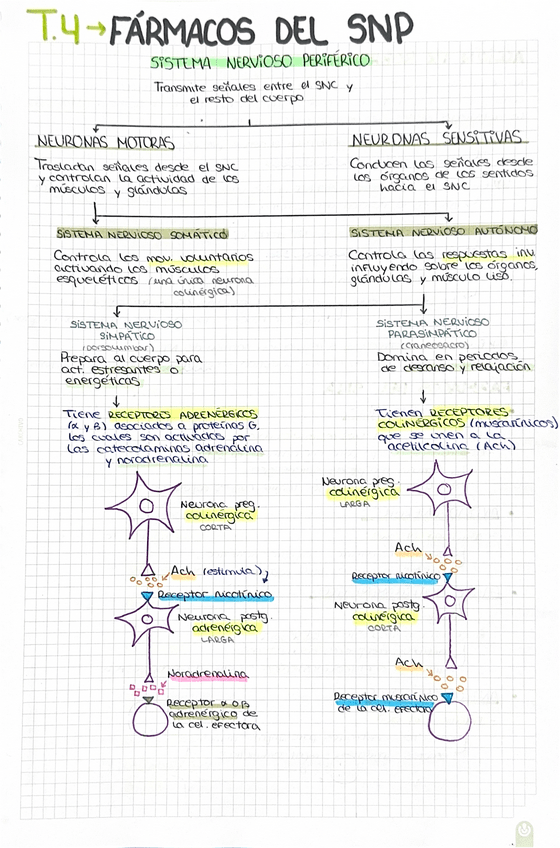 T.4→FÁRMACOS DEL SNP
SISTEMA NERVIOSO PERIFÉRICO
Transmite señales entre el SNC y
el resto del cuerpo
NEURONAS MOTORAS
Trasladan señales desde el SNC
y controlan la actividad de los
músculos y glándulas
NEURONAS SENSITIVAS
Conducen las señales desde
los órganos de los sentidos
hacia el SNC
SISTEMA NERVIOSO SOMÁTICO
Controla los mov. voluntarios
activando los músculos
esqueléticos (una única neurona
colinérgica)
SISTEMA NERVIOSO AUTÓNOMO
Controla las respuestas inv.
influyendo sobre los órganos,
glándulas y músculo liso.
SISTEMA NERVIOSO
SIMPÁTICO
(dorsolumbar)
Prepara al cuerpo para
act. estresantes o
energéticas
SISTEMA NERVIOSO
PARASIMPÁTICO
(craneosacro)
Domina en periodos
de descanso y relajación
Tiene RECEPTORES ADRENÉRGICOS
(α y β) asociados a proteínas G,
los cuales son activados por
las catecolaminas adrenalina
y noradrenalina
Tienen RECEPTORES
COLINÉRGICOS (muscarínicos)
que se unen a la
acetilcolina (Ach)
Neurona preg.
colinérgica
CORTA
Ach (estimula)
Receptor nicotínico
Neurona postg.
adrenérgica
LARGA
Noradrenalina
Receptor α o β
adrenérgico de
la cel. efectora
Neurona preg.
colinérgica
LARGA
Ach
Receptor nicotínico
Neurona postg.
colinérgica
CORTA
Ach
Receptor muscarínico
de la cel. efectora